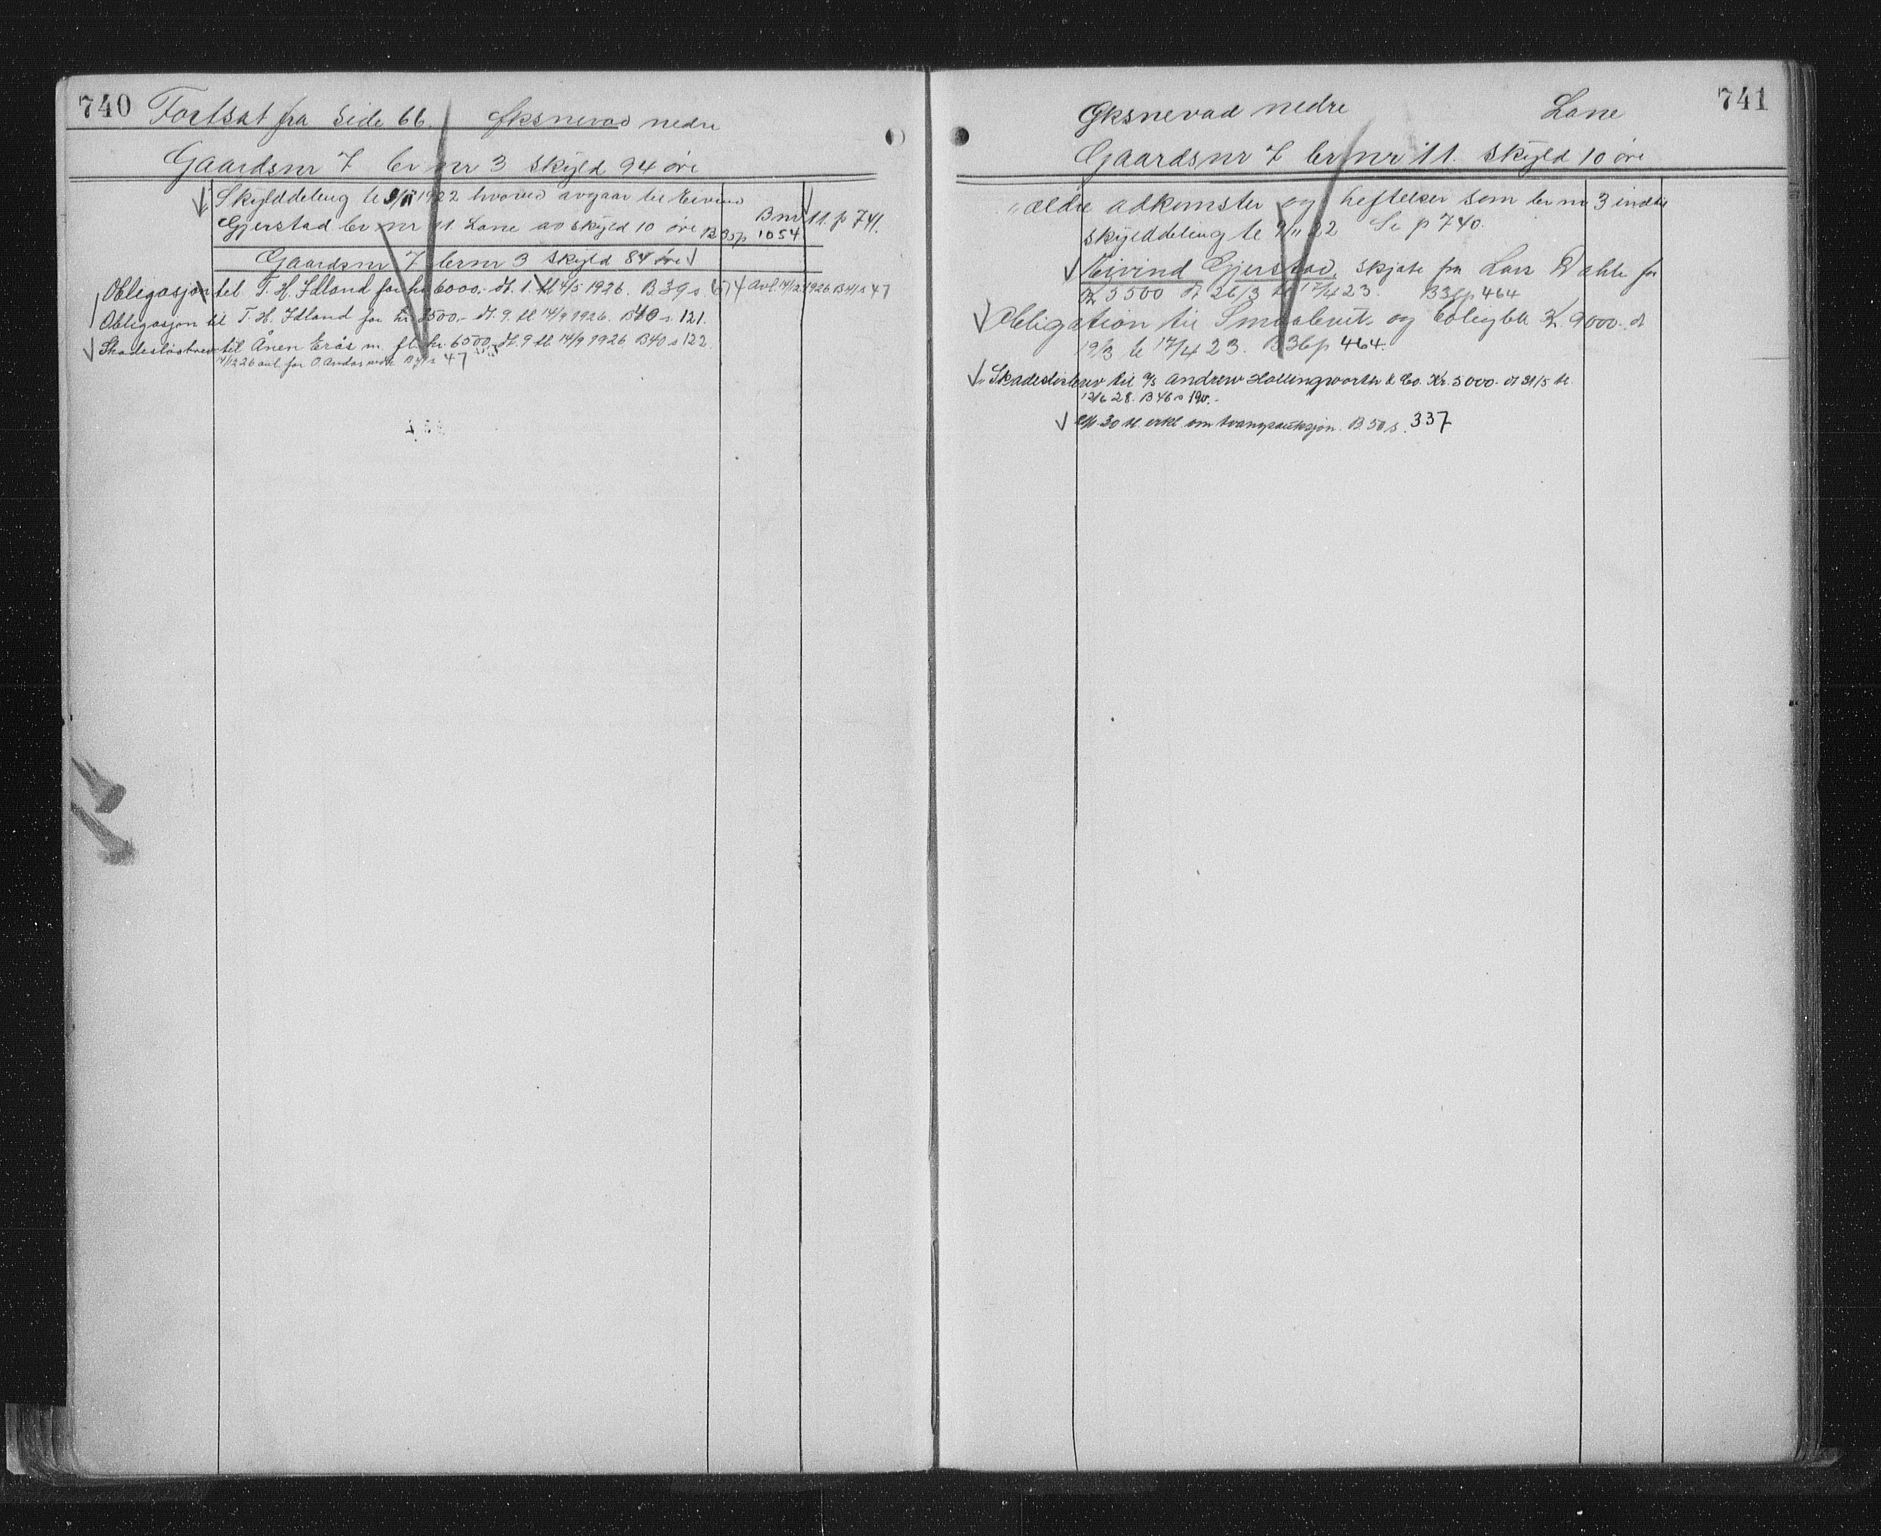 740 Fortsat fra Side 66. Øksnevad nedre
Gaardsnr 7 br nr 3 skyld 94 øre
Skylddeling te 9/11 1922 hvoved avgaar til Eivind
Gjerstad br nr 11 Lone av skyld 10 øre B 35 p 1054 Bnr 11. p 741.
Gaardsnr 7 brnr 3 skyld 84 øre
Obligasjon til T. H. Idland for kr 6000.- dt. 1. tl 4/5 1926. B 39 s 674 Avl. 14/12 1926 B 41 s 47
Obligasjon til T. H. Idland for kr. 2500.- dt. 9. tl 14/9 1926. B 40 s 121.
Skadeslösbrev til Ånen Erås m. fl. kr. 6500,- dt. 9 tl 14/9 1926 B 40 s 122.
14/12 26 avl. for O. B 41 s 47
741
Øksnevad nedre Lone
Gaardsnr 7 br nr 11. skyld 10 øre
ældre adkomster og heftelser som br nr 3 indtil
skylddeling te 9/11 22 Se p 740.
Eivind Gjerstad, skjøte fra Lars Dahle for
Kr 5500 dt 26/3 te 17/4 23. B 36 p 464
Obligation til Smaabruk og Boligbk Kr. 9000. dt
19/3 te 17/4 23. B 36 p 464.
Skadeslösbrev til A/S Andrew Hollingworth & Co. Kr. 5000.- dt 31/5 te
12/6 28. B 46 s 190.-
30 tl. erkl. om tvangsauksjon. B. 50 s. 337